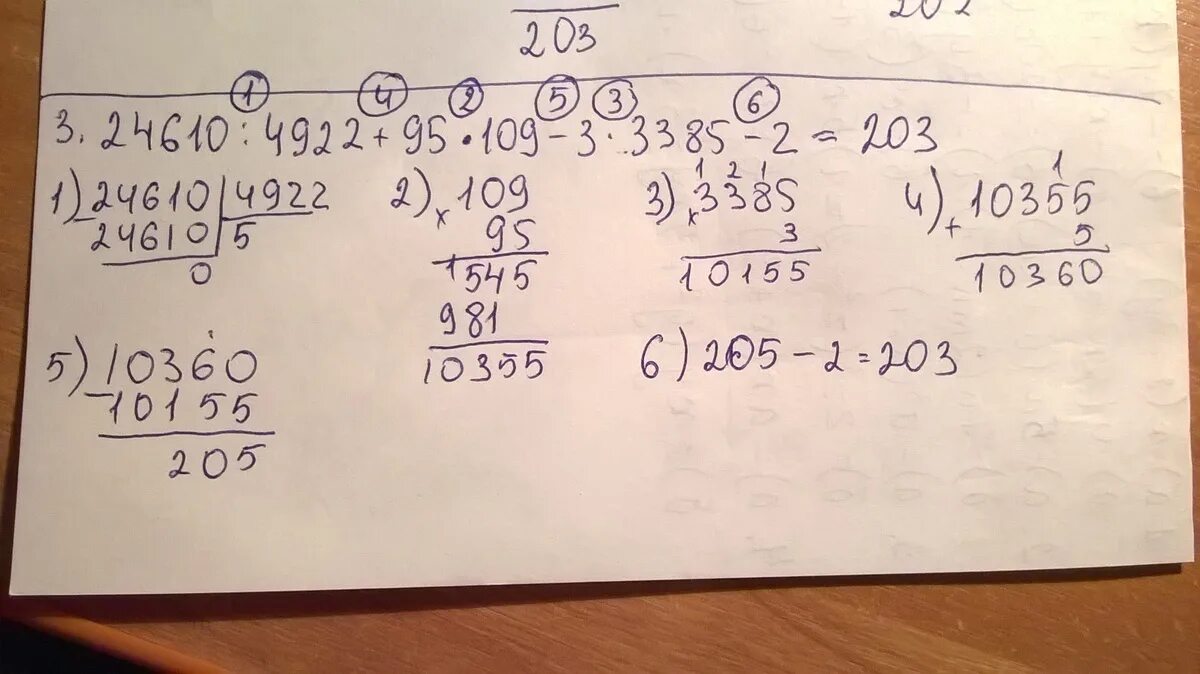 203
202
1 4 2 5 3 6
3. 24610 : 4922 + 95 · 109 − 3 · 3385 − 2 = 203
1) 24610 | 4922
− 24610 | 5
0
2) × 109
95
1545
981
10355
1 2 1
3) × 3385
3
10155
1
4) + 10355
5
10360
5) − 10360
10155
205
6) 205 − 2 = 203